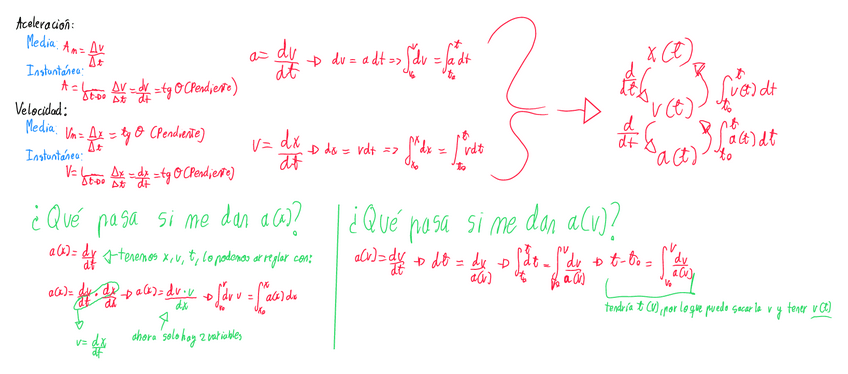 Aceleración:
Media: Am = Δv/Δt
Instantánea:
A = L Δt→0 Δv/Δt = dv/dt = tg θ (Pendiente)
Velocidad:
Media: Vm = Δx/Δt = tg θ (Pendiente)
Instantánea:
V = L Δt→0 Δx/Δt = dx/dt = tg θ (Pendiente)
a = dv/dt → dv = a dt => ∫_{v₀}^{v} dv = ∫_{t₀}^{t} a dt
V = dx/dt → dx = v dt => ∫_{x₀}^{x} dx = ∫_{t₀}^{t} v dt
x(t)
d/dt ∫_{t₀}^{t} v(t) dt
v(t)
d/dt ∫_{t₀}^{t} a(t) dt
a(t)
¿Qué pasa si me dan a(x)?
a(x) = dv/dt ← tenemos x, v, t, lo podemos arreglar con:
a(x) = dv/dt · dx/dx → a(x) = dv · v/dx → ∫_{v₀}^{v} dv v = ∫_{x₀}^{x} a(x) dx
v = dx/dt
ahora solo hay 2 variables
¿Qué pasa si me dan a(v)?
a(v) = dv/dt → dt = dv/a(v) → ∫_{t₀}^{t} dt = ∫_{v₀}^{v} dv/a(v) → t - t₀ = ∫_{v₀}^{v} dv/a(v)
tendría t(v), por lo que puedo sacar la v y tener v(t)